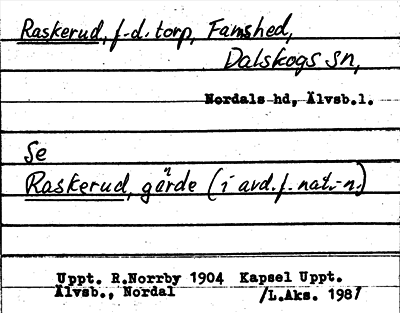 Raskerud, f.d. torp, Famshed,
Dalskogs sn,
Nordals hd, Älvsb.l.
Se
Raskerud, gärde (i avd. f. nat.-n.)
Uppt. R.Norrby 1904 Kapsel Uppt.
Älvsb., Nordal /L.Aks. 1981